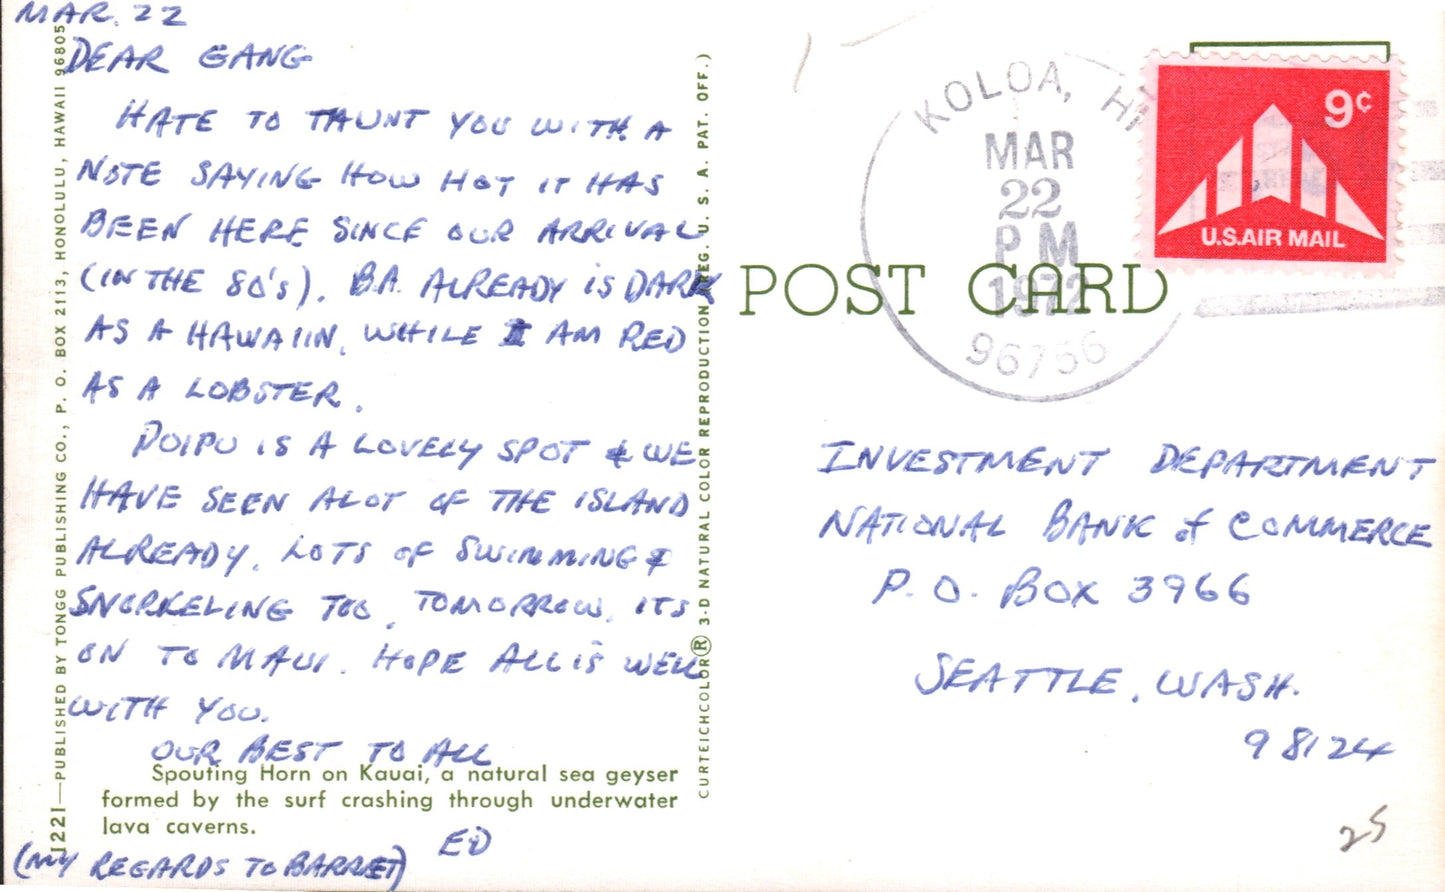 MAR. 22
DEAR GANG
HATE TO TAUNT YOU WITH A
NOTE SAYING HOW HOT IT HAS
BEEN HERE SINCE OUR ARRIVAL
(IN THE 80's). B.A. ALREADY IS DARK
AS A HAWAIIN, WHILE I AM RED
AS A LOBSTER.
POIPU IS A LOVELY SPOT & WE
HAVE SEEN ALOT OF THE ISLAND
ALREADY. LOTS OF SWIMMING &
SNORKELING TOO. TOMORROW, ITS
ON TO MAUI. HOPE ALL IS WELL
WITH YOU.
OUR BEST TO ALL
ED
(MY REGARDS TO BARRET)
Spouting Horn on Kauai, a natural sea geyser
formed by the surf crashing through underwater
lava caverns.
1221—PUBLISHED BY TONGG PUBLISHING CO., P. O. BOX 2113, HONOLULU, HAWAII 96805
CURTEICHCOLOR® 3-D NATURAL COLOR REPRODUCTION (REG. U. S. A. PAT. OFF.)
POST CARD
KOLOA, HI
MAR
22
PM
1972
96756
9¢
U.S. AIR MAIL
INVESTMENT DEPARTMENT
NATIONAL BANK of COMMERCE
P.O. BOX 3966
SEATTLE, WASH.
98124
25